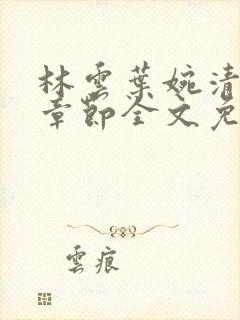 林雲葉婉清
章節全文免
雲痕